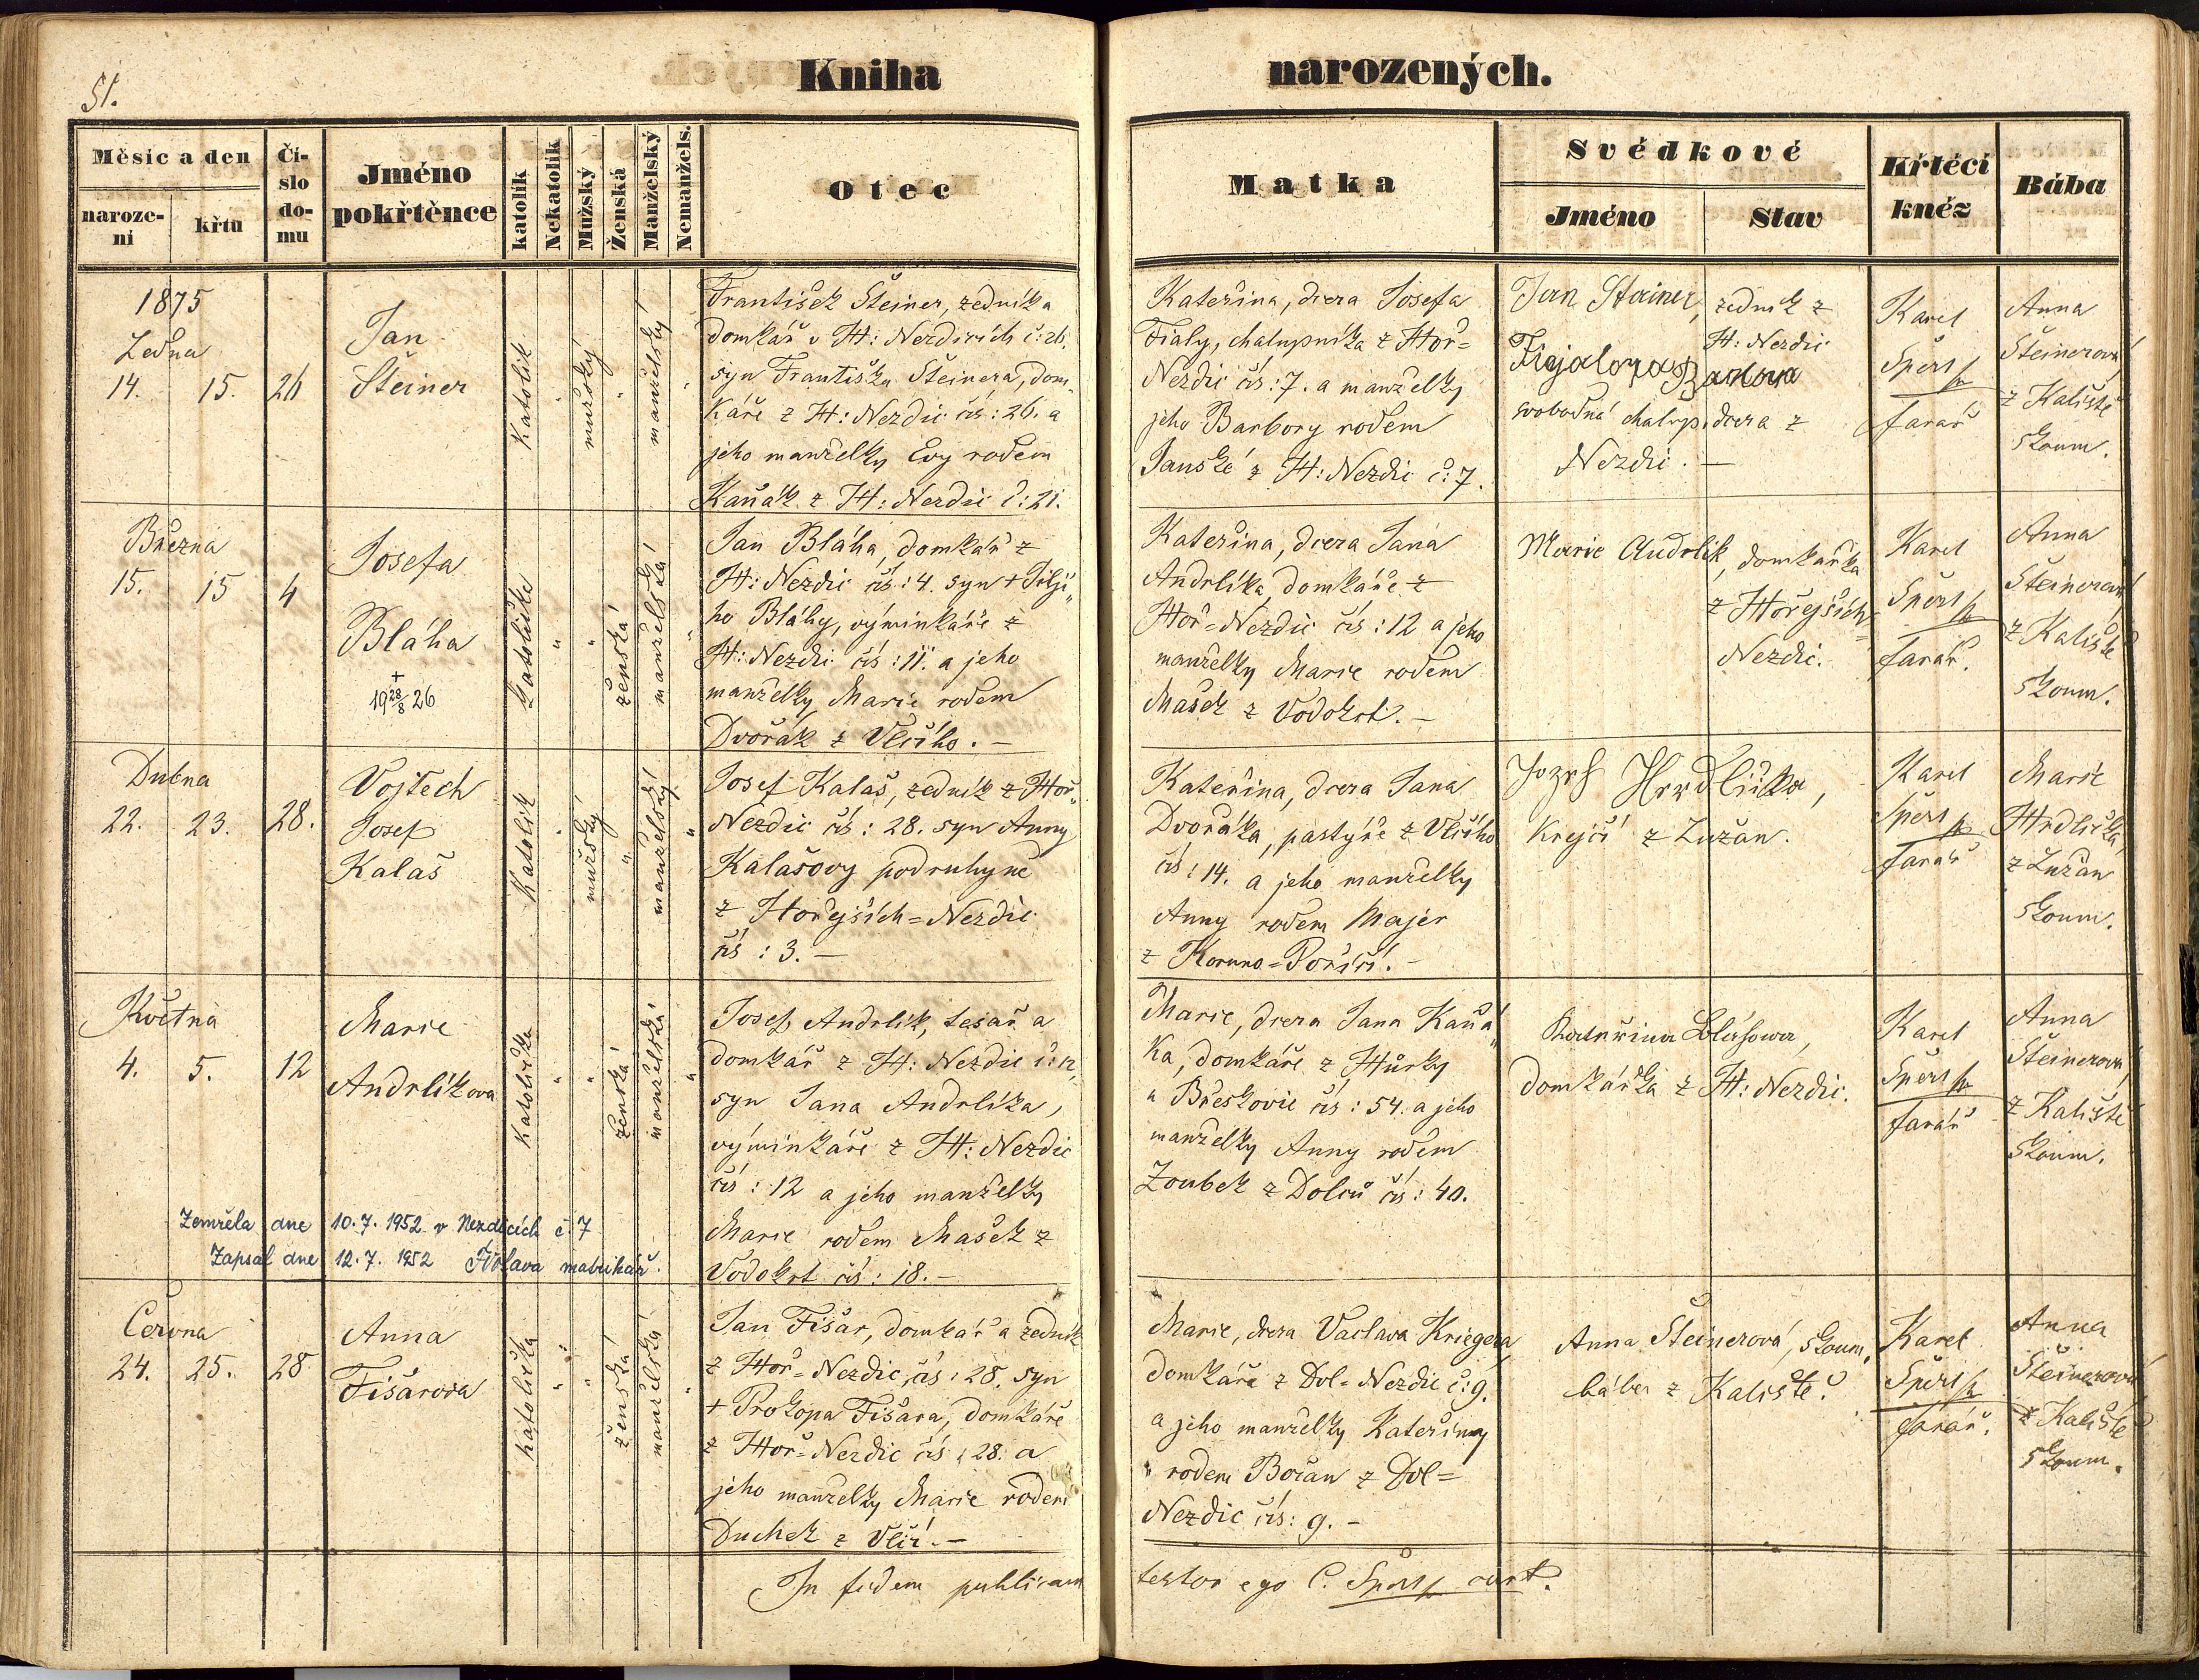 51.
Kniha narozených.
Měsíc a den
naroze-
ni
křtu
Čí-
slo
do-
mu
Jméno
pokřtěnce
katolík
Nekatolík
Mužský
Ženská
Manželský
Nemanžels.
Otec
Matka
Svědkové
Jméno
Stav
Křtěcí
kněz
Bába
1875
Ledna
14. 15. 26
Jan
Šteiner
Katolík
mužský
manželský
František Šteiner, zedník a
domkář v H: Nezdicích č: 26.
syn Františka Šteinera, dom„
káře z H: Nezdic čís: 26. a
jeho manželky Evy rodem
Kaňák z H: Nezdic č: 21.
Kateřina, dcera Josefa
Fialy, chalupníka z Hoř=
Nezdic čís: 7. a manželky
jeho Barbory rodem
Janské z H: Nezdic č: 7.
Jan Steiner, zedník z
H: Nezdic
svobodná chalup. dcera z
Nezdic. —
Karel
Šperl
farář
Anna
Šteinerová
z Kaliště
zkoum.
Března
15. 15 4
Josefa
Bláha
+
19 28/8 26
Katolička
ženská
manželská
Jan Bláha, domkář z
H: Nezdic čís: 4. syn + Jiljí„
ho Bláhy, výminkáře z
H: Nezdic čís: 11. a jeho
manželky Marie rodem
Dvořák z Vlčího. —
Kateřina, dcera Jana
Andrlíka, domkáře z
Hoř= Nezdic čís: 12 a jeho
manželky Marie rodem
Mašek z Vodokrt. —
Marie Andrlik, domkářka
z Hořejších=
Nezdic.
Karel
Šperl
farář.
Anna
Šteinerová
z Kaliště
zkoum.
Dubna
22. 23. 28.
Vojtěch
Josef
Kalaš
Katolík
mužský
manželský
Josef Kalaš, zedník z Hoř„
Nezdic čís: 28. syn Anny
Kalašovy podruhyně
z Hořejších=Nezdic
čís: 3. —
Kateřina, dcera Jana
Dvořáka, pastýře z Vlčího
čís: 14. a jeho manželky
Anny rodem Majer
z Koruno=Poříčí. —
Jozef Hrdlička,
krejčí z Lužan.
Karel
Šperl
farář
Marie
Hrdlička
z Lužan
zkoum.
Května
4. 5. 12
Marie
Andrlíkova
Katolička
ženská
manželská
Josef Andrlík, tesař a
domkář z H: Nezdic č: 12,
syn Jana Andrlíka,
výminkáře z H: Nezdic
čís: 12 a jeho manželky
Marie rodem Mašek z
Vodokrt čís: 18. —
Marie, dcera Jana Kaňá„
ka, domkáře z Hůrky
a Březkovic čís: 54. a jeho
manželky Anny rodem
Zoubek z Dolců čís: 40.
Kateřina Blahowa,
domkářka z H: Nezdic.
Karel
Šperl
farář
Anna
Šteinerová
z Kaliště
zkoum.
Zemřela dne 10. 7. 1952 v Nezdicích č. 7
Zapsal dne 12. 7. 1952 matrikář.
Června
24. 25. 28
Anna
Fišarova
Katolička
ženská
manželská
Jan Fišar, domkář a zedník
z Hoř= Nezdic, čís: 28. syn
+ Prokopa Fišara, domkáře
z Hoř= Nezdic čís: 28. a
jeho manželky Marie rodem
Duchek z Vlčí. —
Marie, dcera Vaclava Kriegera
domkáře z Dol= Nezdic č: 9.
a jeho manželky Kateřiny
rodem Bočan z Dol=
Nezdic čís: 9. —
Anna Šteinerová, zkoum.
bába z Kaliště.
Karel
Šperl
farář.
Anna
Šteinerová
z Kaliště
zkoum.
In fidem publicam testor ego C. Šperl